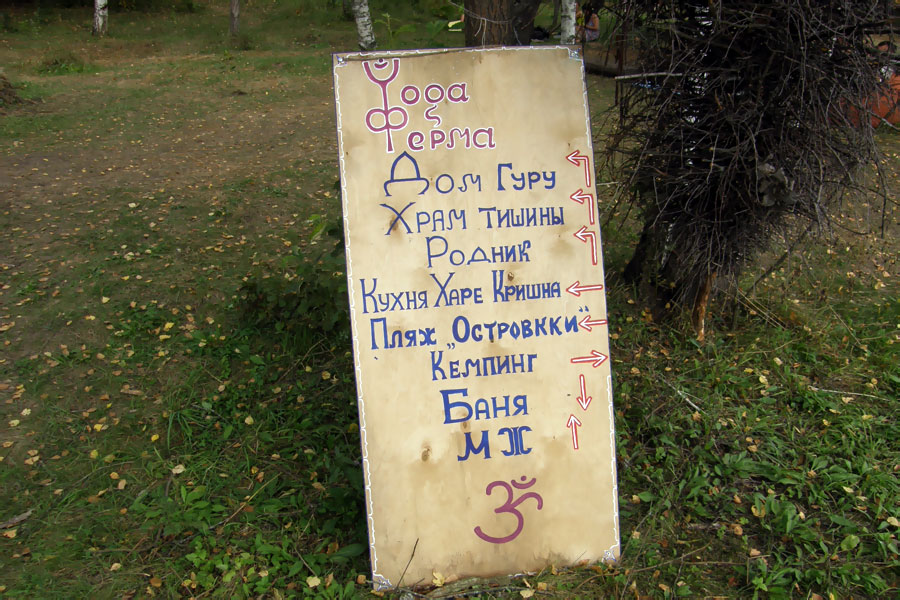 Йога
Ферма
Дом Гуру
Храм тишины
Родник
Кухня Харе Кришна
Пляж „Островкки"
Кемпинг
Баня
М Ж
ॐ